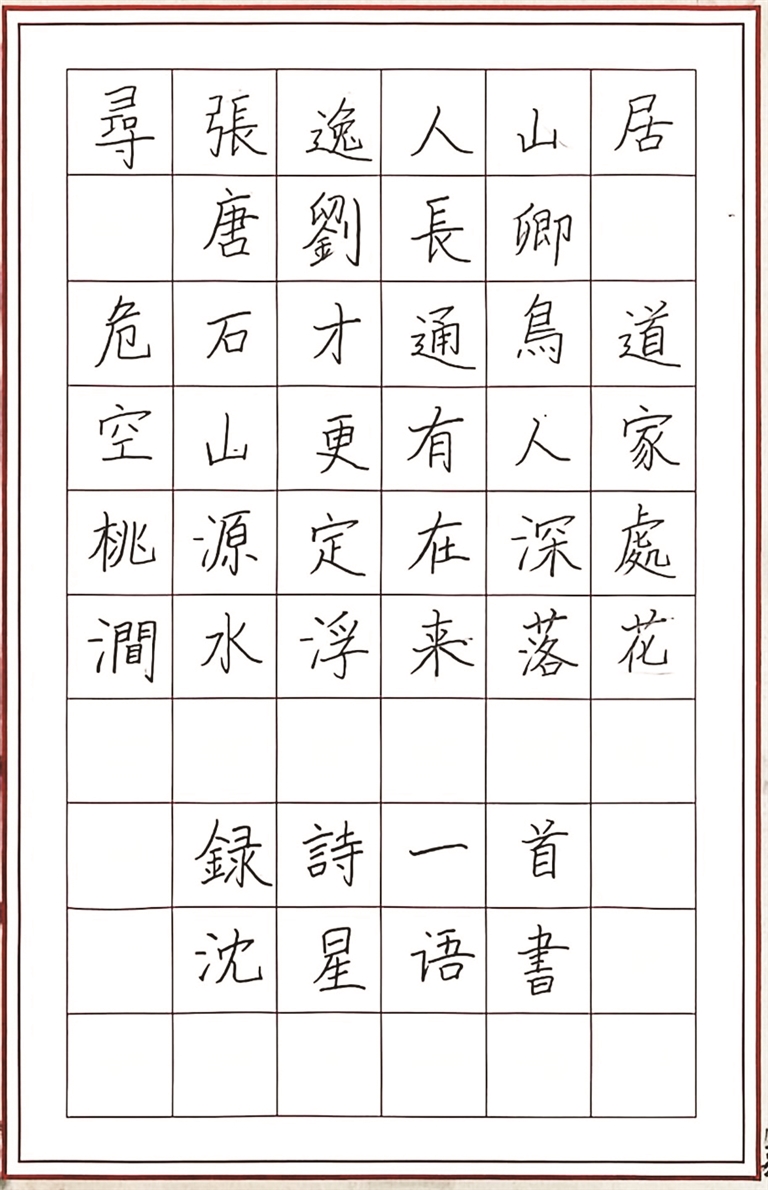 尋張逸人山居
唐劉長卿
危石才通鳥道
空山更有人家
桃源定在深處
澗水浮来落花
録詩一首
沈星语書